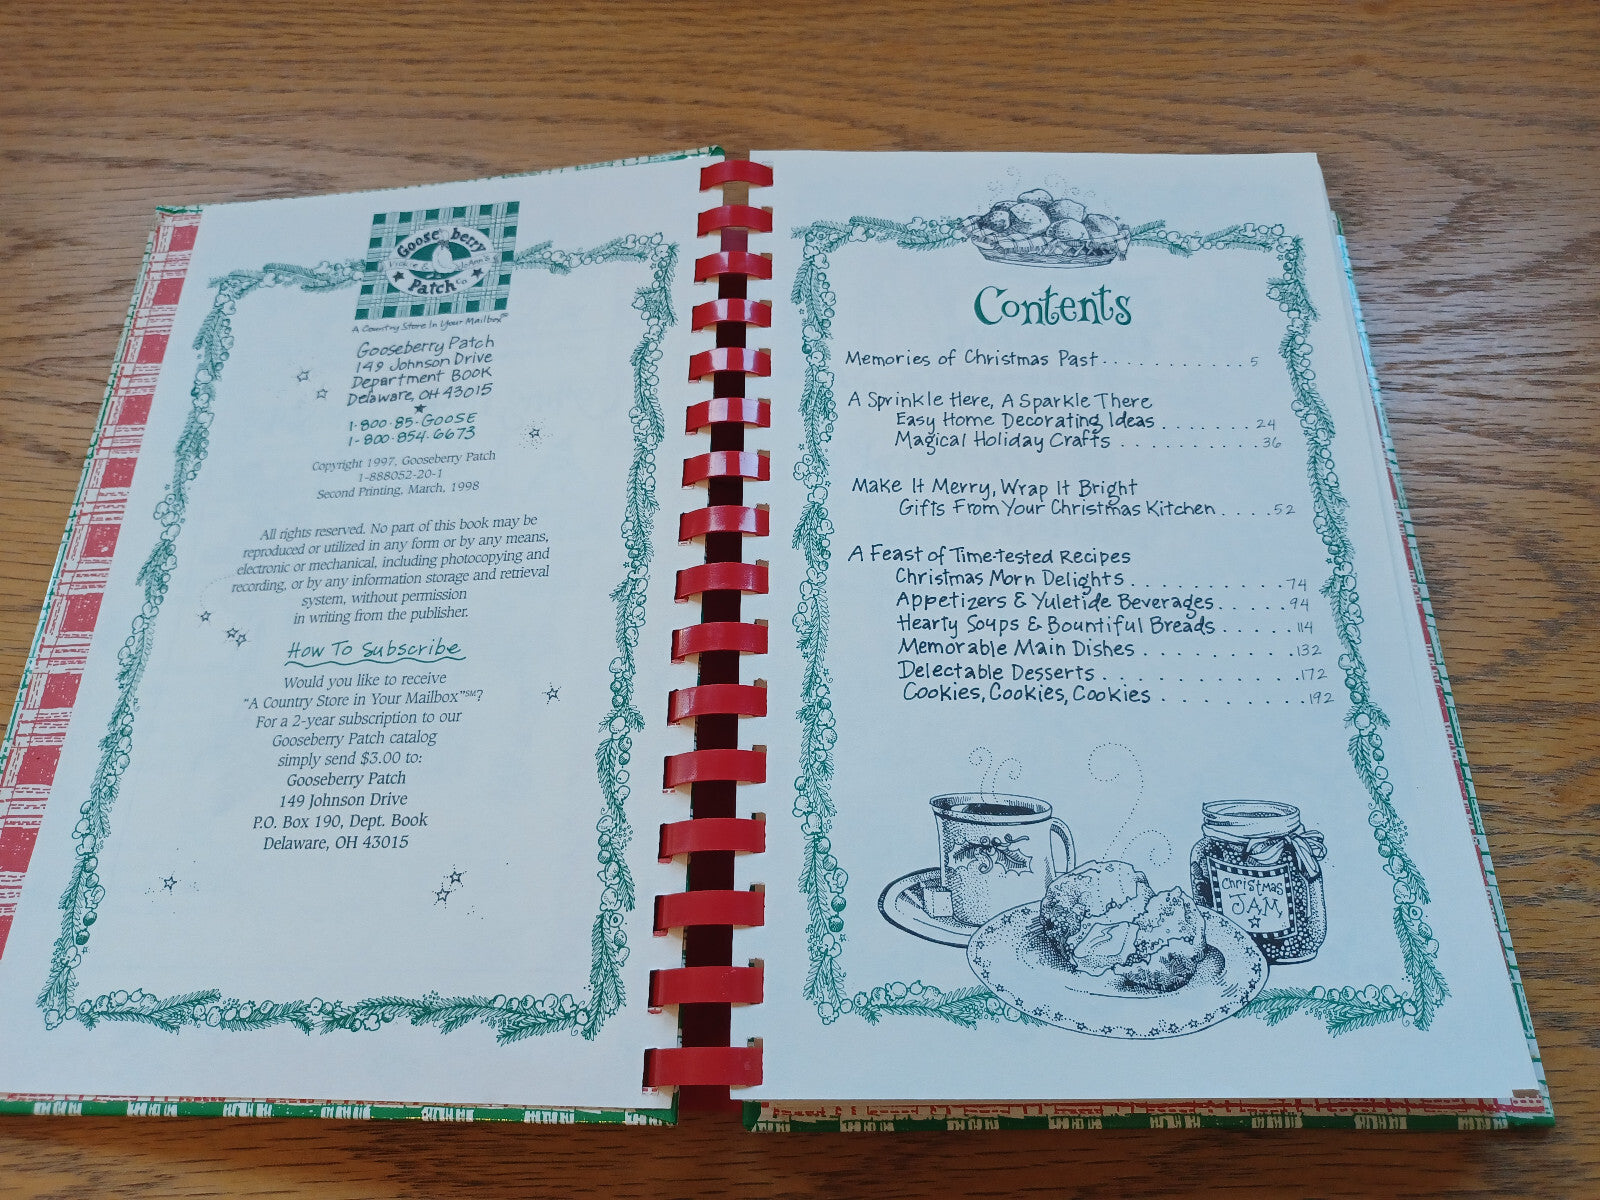 Gooseberry
Vickie & Jo Ann's
Patch Co
A Country Store In Your Mailbox®
Gooseberry Patch
149 Johnson Drive
Department BOOK
Delaware, OH 43015
1·800·85·GOOSE
1·800·854·6673
Copyright 1997, Gooseberry Patch
1-888052-20-1
Second Printing, March, 1998
All rights reserved. No part of this book may be
reproduced or utilized in any form or by any means,
electronic or mechanical, including photocopying and
recording, or by any information storage and retrieval
system, without permission
in writing from the publisher.
How To Subscribe
Would you like to receive
"A Country Store in Your Mailbox"℠?
For a 2-year subscription to our
Gooseberry Patch catalog
simply send $3.00 to:
Gooseberry Patch
149 Johnson Drive
P.O. Box 190, Dept. Book
Delaware, OH 43015
Contents
Memories of Christmas Past . . . . . . . . . . . 5
A Sprinkle Here, A Sparkle There
Easy Home Decorating Ideas . . . . . . . . 24
Magical Holiday Crafts . . . . . . . . . . . . 36
Make It Merry, Wrap It Bright
Gifts From Your Christmas Kitchen . . . . 52
A Feast of Time-tested Recipes
Christmas Morn Delights . . . . . . . . . . . . . 74
Appetizers & Yuletide Beverages . . . . . . 94
Hearty Soups & Bountiful Breads . . . . . . 114
Memorable Main Dishes . . . . . . . . . . . . . 132
Delectable Desserts . . . . . . . . . . . . . . . . 172
Cookies, Cookies, Cookies . . . . . . . . . . . 192
Christmas
JAM